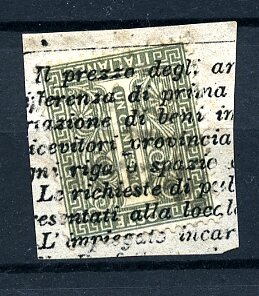 Il prezzo degli ar
ifferenza di prima
razione di beni im
icevitori provincia
riga o spazio
Le richieste di
esentati alla
L'impiegato incar
ITALIAN
UN